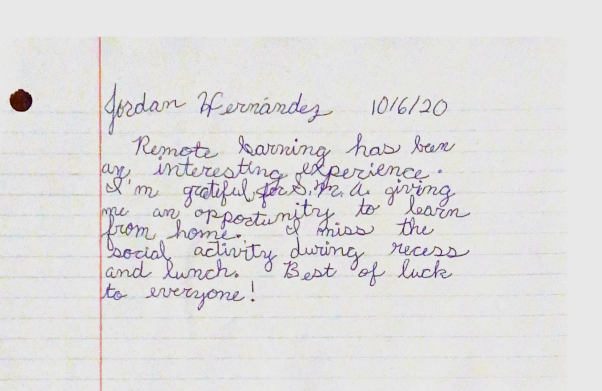 Jordan Hernández 10/6/20
Remote learning has been
an interesting experience.
I'm grateful for S.M.A. giving
me an opportunity to learn
from home. I miss the
social activity during recess
and lunch. Best of luck
to everyone!